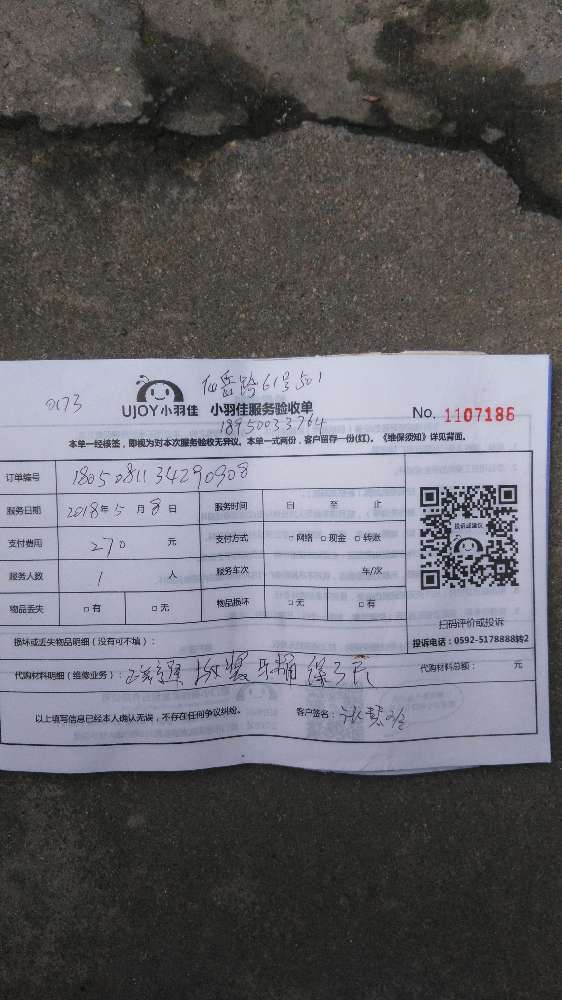 仙岳路61号501
0173
UJOY小羽佳 小羽佳服务验收单 No. 1107186
18950033764
本单一经接签,即视为对本次服务验收无异议。本单一式两份,客户留存一份(红)。《维保须知》详见背面。
订单编号 1805081134290908
服务日期 2018年5月8日 服务时间 自 至 止
支付费用 270 元 支付方式 □网络 □现金 □转账
服务人数 1 人 服务车次 车/次
物品丢失 □有 □无 物品损坏 □无 □有
投诉或建议
扫码评价或投诉
投诉电话:0592-5178888转2
损坏或丢失物品明细(没有可不填):
代购材料明细(维修业务): 代购材料总额: 元
以上填写信息已经本人确认无误,不存在任何争议纠纷。 客户签名: